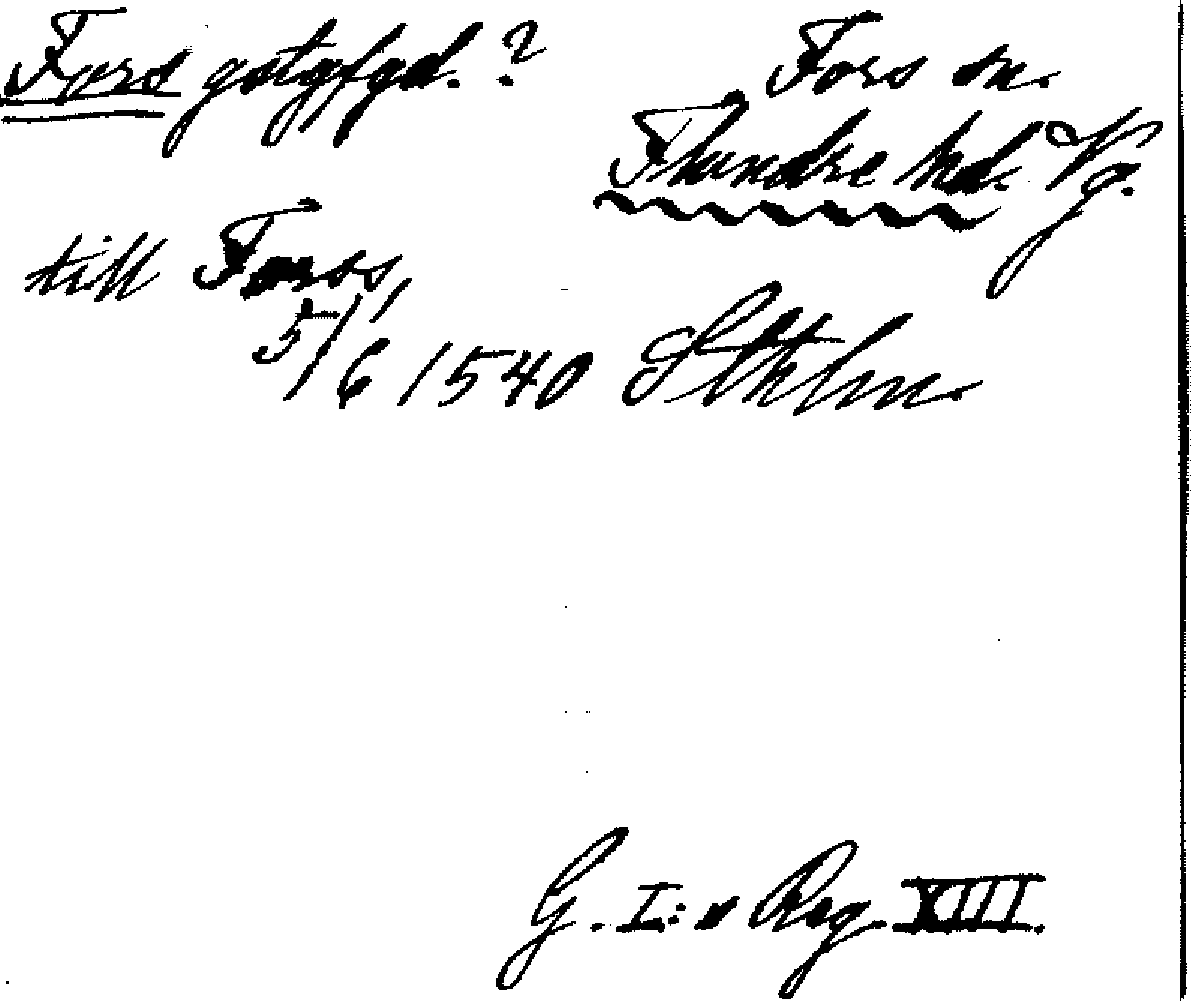 Fors gstgfgd. ?
Fors sn.
Flundre hd. Vg.
till Forss,
5/6 1540 Sthlm.
G. I:s Reg. XIII.